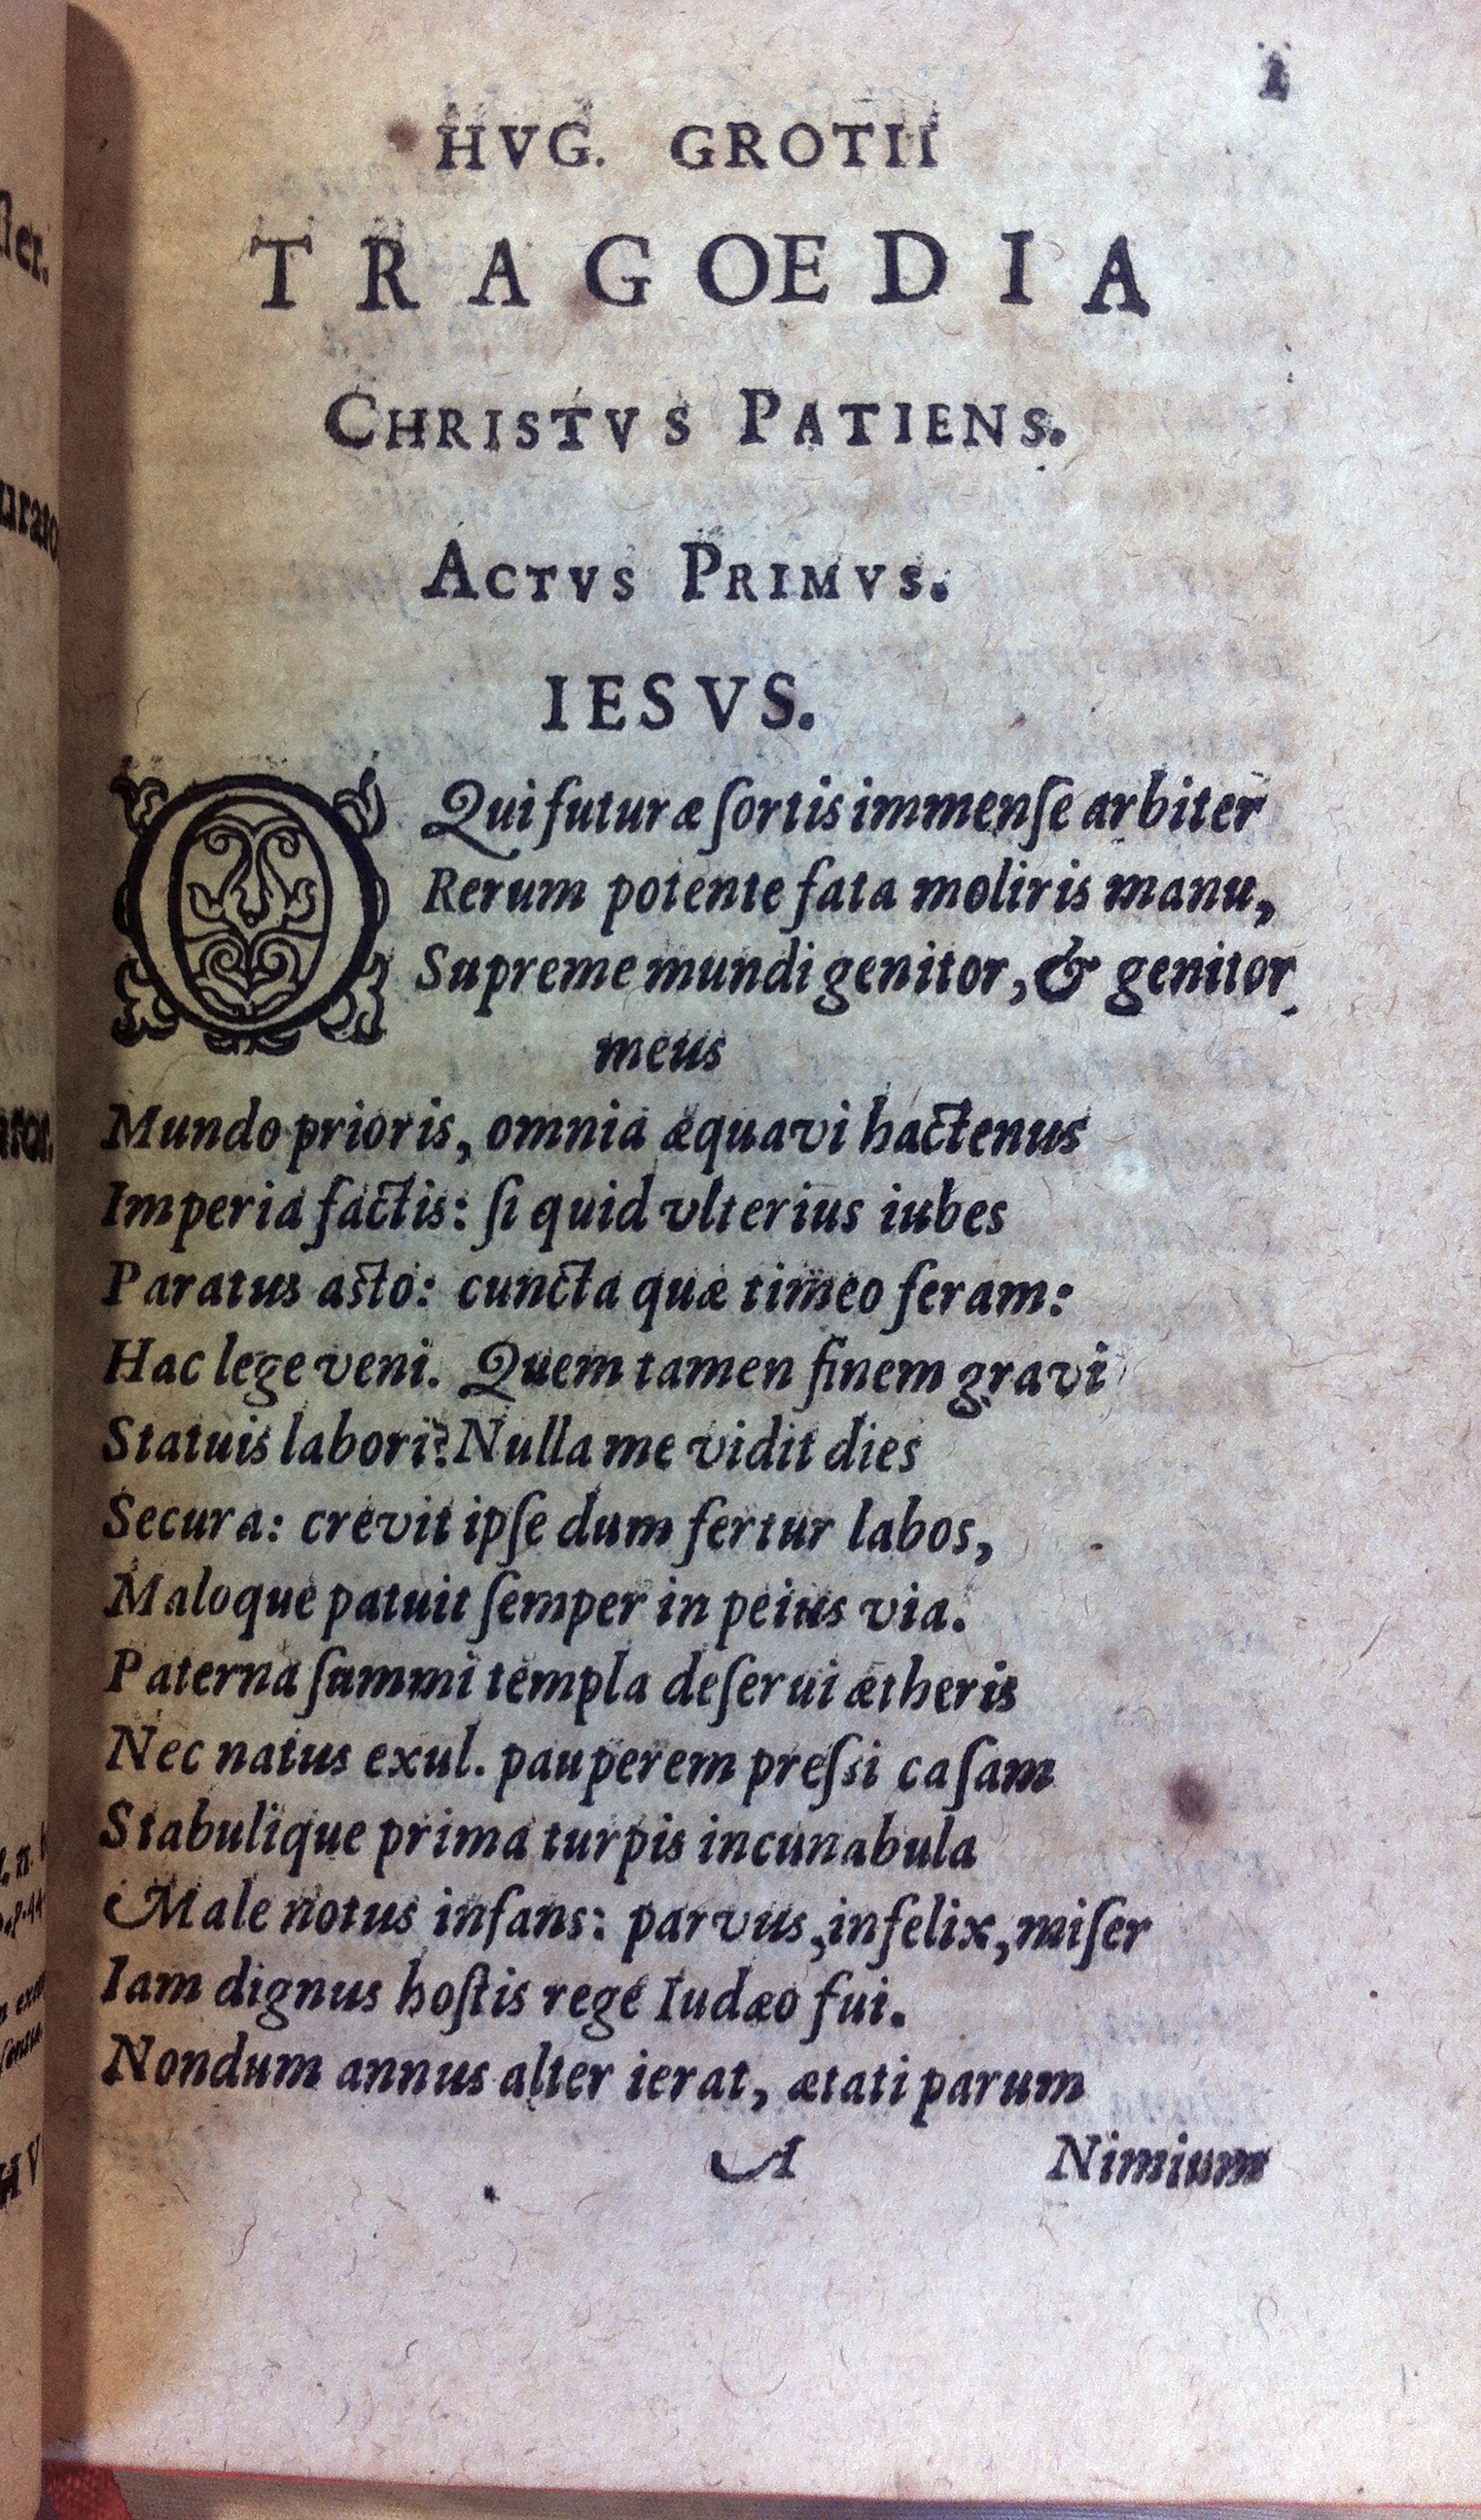 1
HVG. GROTII
TRAGOEDIA
CHRISTVS PATIENS.
ACTVS PRIMVS.
IESVS.
O Qui futuræ ſortis immenſe arbiter
Rerum potente fata moliris manu,
Supreme mundi genitor, & genitor
meus
Mundo prioris, omnia æquavi hactenus
Imperia factis: ſi quid vlterius iubes
Paratus asto: cuncta quæ timeo feram:
Hac lege veni. Quem tamen finem gravi
Statuis labori? Nulla me vidit dies
Secura: crevit ipſe dum fertur labos,
Maloque patuit ſemper in peius via.
Paterna ſummi templa deſerui ætheris
Nec natus exul. pauperem preſsi caſam
Stabulique prima turpis incunabula
Male notus infans: parvus, infelix, miſer
Iam dignus hoſtis rege Iudæo fui.
Nondum annus alter ierat, ætati parum
A Nimium